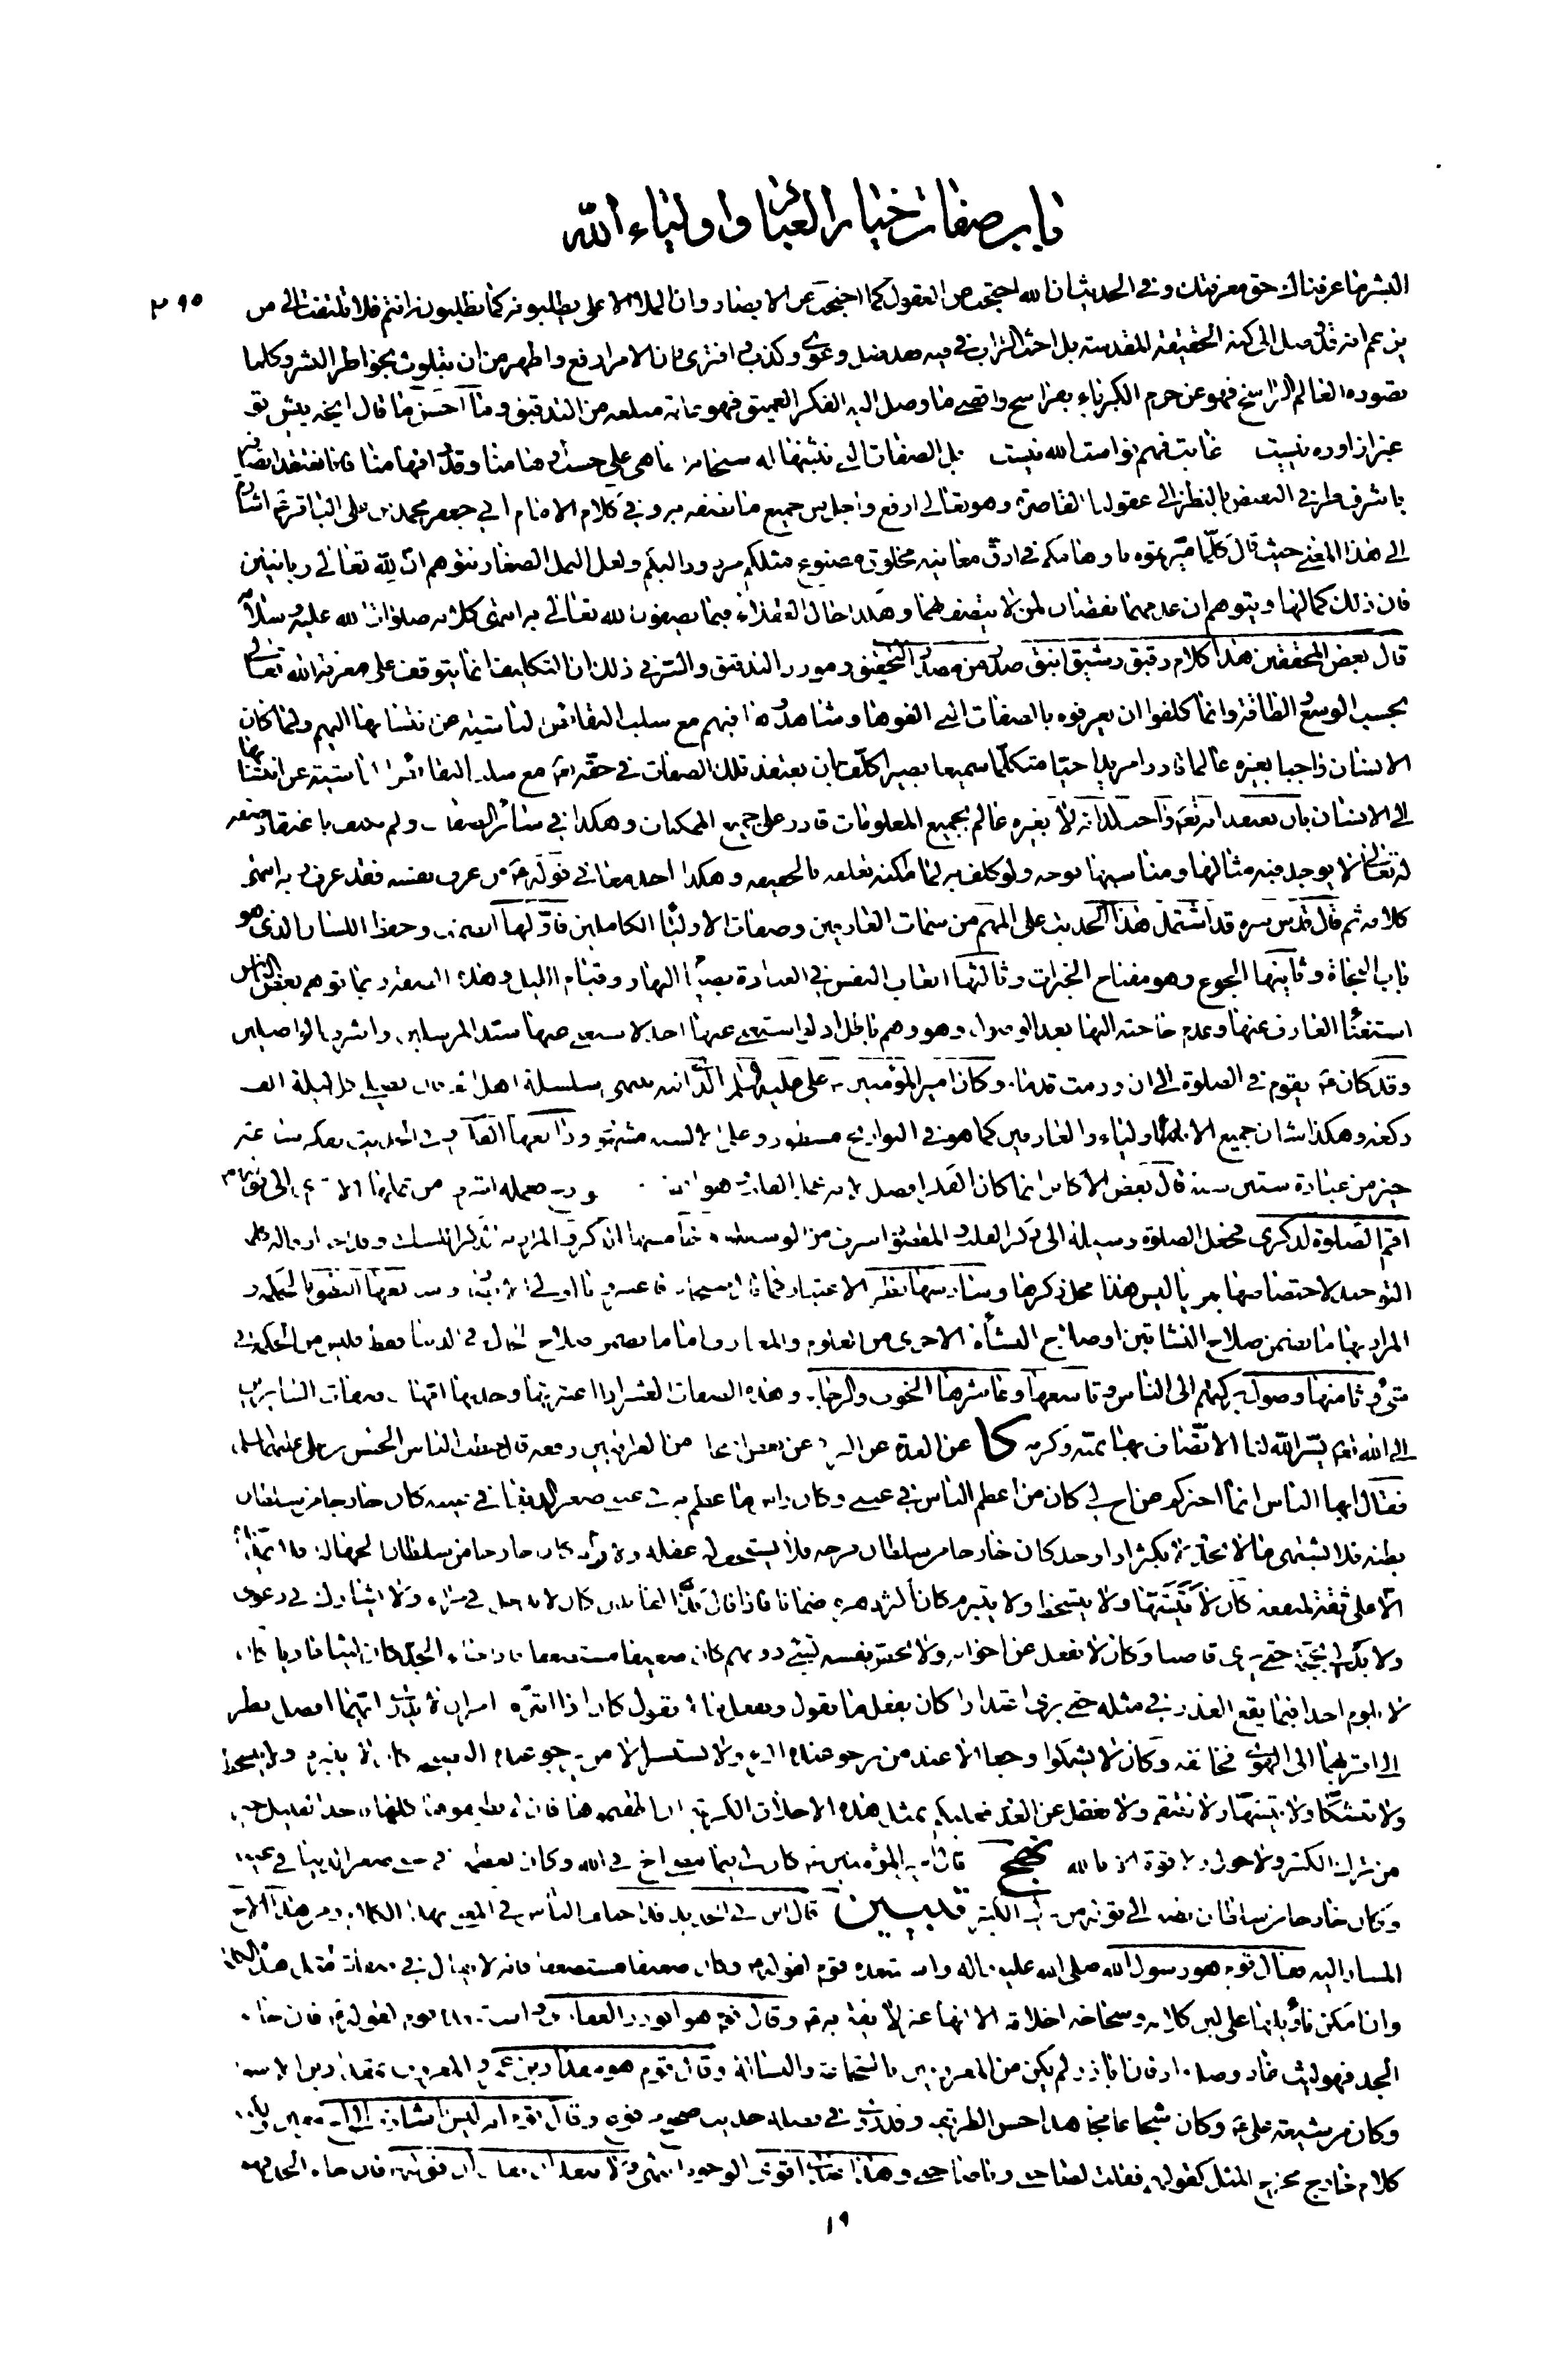 باب صفات خيار العباد واولياء الله
٢٩٥
البشر ما عرفناك حق معرفتك وفى الحديث ان الله احتجب عن العقول كما احتجب عن الابصار وان الملأ الاعلى يطلبونه كما تطلبونه انتم فلا تلتفت الى من
يزعم انه قد وصل الى كنه الحقيقة المقدسة بل احث التراب فى فيه فقد ضل وغوى وكذب وافترى فان الامر ارفع واطهر من ان يتلوث بخواطر البشر وكلما
تصوره العالم الراسخ فهو عن حرم الكبرياء بفراسخ واقصى ما وصل اليه الفكر العميق فهو غاية مبلغه من التدقيق وما احسن ما قال آنچه پيش تو
غير ازاو ره نيست غايت فهم تو است الله نيست بل الصفات التى نثبتها له سبحانه انما هى على حسب اوهامنا وقدر افهامنا فانا نعتقد اتصافه
باشرف طرفى النقيض بالنظر الى عقولنا القاصرة وهو تعالى ارفع واجل من جميع ما نصفه به وفى كلام الامام ابى جعفر محمد بن على الباقر ع اشارة
الى هذا المعنى حيث قال كلما ميزتموه باوهامكم فى ادق معانيه مخلوق مصنوع مثلكم مردود اليكم ولعل النمل الصغار تتوهم ان لله تعالى زبانيتين
فان ذلك كمالها ويتوهم ان عدمهما نقصان لمن لا يتصف بهما وهكذا حال العقلاء فيما يصفون الله تعالى به انتهى كلامه صلوات الله عليه وسلامه
قال بعض المحققين هذا كلام دقيق رشيق انيق صدر من مصدر التحقيق ومورد التدقيق والسر فى ذلك ان التكليف انما يتوقف على معرفة الله تعالى
بحسب الوسع والطاقة وانما كلفوا ان يعرفوه بالصفات التى الفوها وشاهدوها فيهم مع سلب النقائص الناشية عن انتسابها اليهم ولما كان
الانسان واجبا بغيره عالما قادرا مريدا حيا متكلما سميعا بصيرا كلف بان يعتقد تلك الصفات فى حقه تعالى مع سلب النقائص الناشية عن انتسابها
الى الانسان بان يعتقد انه تعالى واجب لذاته لا بغيره عالم بجميع المعلومات قادر على جميع الممكنات وهكذا فى سائر الصفات ولم يكلف باعتقاد صفة
له تعالى لا يوجد فيه مثالها ومناسبها بوجه ولو كلف به لما امكنه تعقله بالحقيقة وهكذا احد معانى قوله ع من عرف نفسه فقد عرف ربه انتهى
كلامه ثم قال قدس سره قد اشتمل هذا الحديث على المهم من سمات العارفين وصفات الاولياء الكاملين فاولها الصمت وحفظ اللسان الذى هو
باب النجاة وثانيها الجوع وهو مفتاح الخيرات وثالثها اتعاب النفس فى العبادة بصيام النهار وقيام الليل وهذه الصفة ربما توهم بعض الناس
استغناء العارف عنها وعدم حاجته اليها بعد الوصول وهو وهم باطل اذ لو استغنى عنها احد لاستغنى عنها سيد المرسلين واشرف الواصلين
وقد كان ص يقوم فى الصلوة الى ان ورمت قدماه وكان امير المؤمنين على عليه السلم الذى ينتهى اليه سلسلة اهل العرفان يصلى كل ليلة الف
ركعة وهكذا شان جميع الاولياء والعارفين كما هو فى التواريخ مسطور وعلى الالسنة مشهور ورابعها الفكر وفى الحديث تفكر ساعة
خير من عبادة ستين سنة قال بعض الاكابر انما كان الفكر افضل لانه عمل القلب وهو
اقم الصلوة لذكرى فجعل الصلوة وسيلة الى ذكر القلب والمقصود اشرف من الوسيلة وخامسها الذكر والمراد به الذكر اللسانى
التوحيد لاختصاصها بمزايا ليس هذا محل ذكرها وسادسها نظر الاعتبار كما قال سبحانه فاعتبروا يا اولى الابصار وسابعها النطق بالحكمة و
المراد بها ما يتضمن صلاح النشأتين او صلاح النشأة الاخرى من العلوم والمعارف اما ما يتضمن صلاح الحال فى الدنيا فقط فليس من الحكمة فى
شئ وثامنها وصول بركتهم الى الناس وتاسعها وعاشرها الخوف والرجاء وهذه الصفات العشر اذا اعتبرتها وجدتها امهات صفات السائرين
الى الله تعالى يسر الله لنا الاتصاف بها بمنه وكرمه كا عن العدة عن البرقى عن بعض اصحابنا من العراقيين رفعه قال خطب الناس الحسن بن على عليهما السلم
فقال ايها الناس انما اخبركم عن اخ لى كان من اعظم الناس فى عينى وكان راس ما عظم به فى عينى صغر الدنيا فى عينه كان خارجا من سلطان
بطنه فلا يشتهى ما لا يجد ولا يكثر اذا وجد كان خارجا من سلطان فرجه فلا يستخف له عقله ولا رأيه كان خارجا من سلطان الجهالة فلا يمد يده
الا على ثقة لمنفعة كان لا يتشهى ولا يتسخط ولا يتبرم كان اكثر دهره صماتا فاذا قال بذ القائلين كان لا يدخل فى مراء ولا يشارك فى دعوى
ولا يدلى بحجة حتى يرى قاضيا وكان لا يغفل عن اخوانه ولا يختص نفسه بشئ دونهم كان ضعيفا مستضعفا فاذا جاء الجد كان ليثا عاديا كان
لا يلوم احدا فيما يقع العذر فى مثله حتى يرى اعتذارا كان يفعل ما يقول ويفعل ما لا يقول كان اذا ابتزه امران لا يدرى ايهما افضل نظر
الى اقربهما الى الهوى فخالفه وكان لا يشكوا وجعا الا عند من يرجو عنده البرء ولا يستشير الا من يرجو عنده النصيحة كان لا يتبرم ولا يتسخط
ولا يتشكى ولا يتشهى ولا ينتقم ولا يغفل عن العدو فعليكم بمثل هذه الاخلاق الكريمة ان اطقتموها فان لم تطيقوها كلها فاخذ القليل خير
من ترك الكثير ولا حول ولا قوة الا بالله نهج قال امير المؤمنين ع كان لى فيما مضى اخ فى الله وكان يعظمه فى عينى صغر الدنيا فى عينه
وكان خارجا من سلطان بطنه الى قوله من ترك الكثير تبيين قال ابن ابى الحديد قد اختلف الناس فى المعنى بهذا الكلام ومن هذا الاخ
المشار اليه فقال قوم هو رسول الله صلى الله عليه واله واستبعده قوم لقوله ع وكان ضعيفا مستضعفا فانه لا يقال فى صفاته مثل هذه الكلمة
وان امكن تاويلها على لين كلامه وسجاحة اخلاقه الا انها غير لائقة به ص وقال قوم هو ابو ذر الغفارى واستبعده قوم لقوله ع فان جاء
الجد فهو ليث عاد وصل واد فان ابا ذر لم يكن من المعروفين بالشجاعة والبسالة وقال قوم هو مقداد بن عمرو المعروف بمقداد بن الاسود
وكان من شيعة على ع وكان شجاعا مجاهدا حسن الطريقة وقد ورد فى فضله حديث صحيح مرفوع وقال قوم انه ليس باشارة الى اخ معين ولكنه
كلام خارج مخرج المثل كقولهم فقلت لصاحبى ويا صاحبى وهذا عندى اقوى الوجوه انتهى ولا يبعد ان يقال ان قوله ع فان جاء الجد فهو
١٩